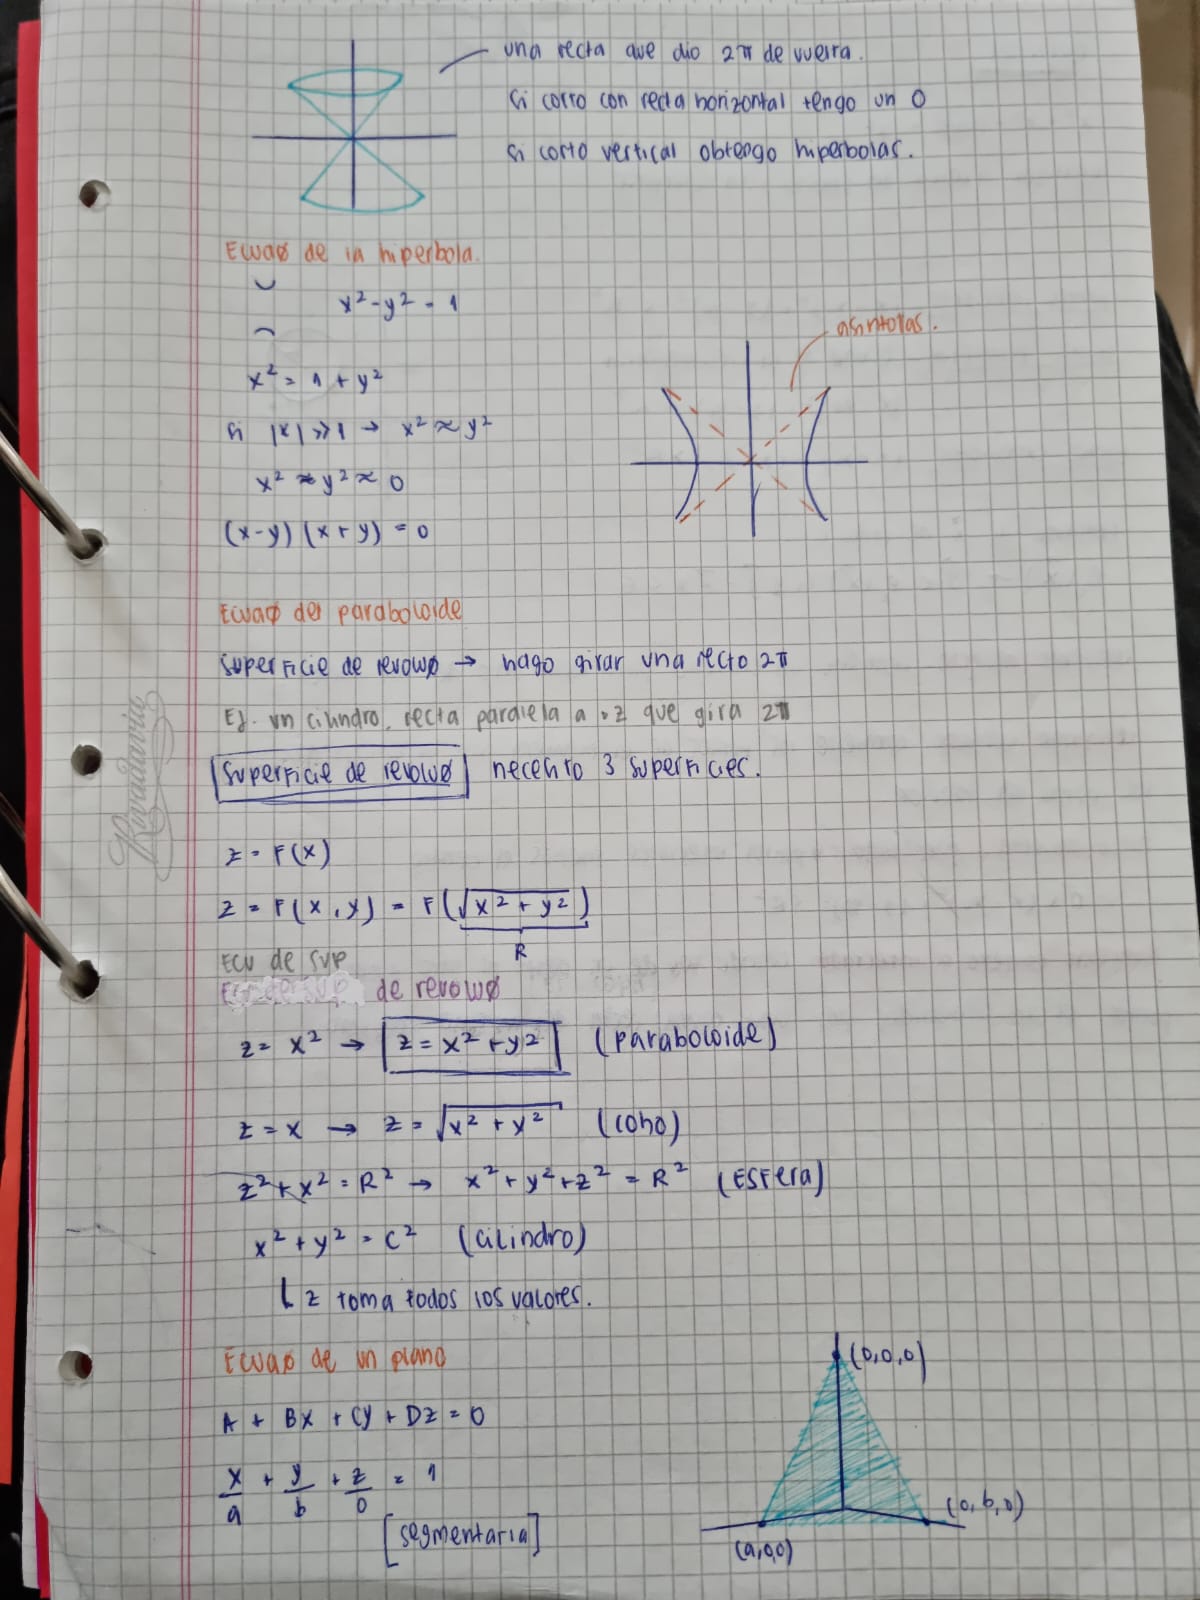 una recta que dio 2π de vuelta.
Si corto con recta horizontal tengo un O
Si corto vertical obtengo hiperbolas.
Ecuaø de la hiperbola.
x² - y² = 1
asintotas.
x² = 1 + y²
Si |x| >> 1 → x² ≈ y²
x² ≈ y² ≈ 0
(x-y) (x+y) = 0
Ecuaø del paraboloide
Superficie de revoluø → hago girar una recta 2π
Ej. un cilindro, recta paralela a z que gira 2π
Superficie de revoluø necesito 3 superficies.
Rivadavia
z = F(x)
z = F(x,y) = F(√x² + y²)
R
Ecu de sup
de revoluø
z = x² → z = x² + y² (paraboloide)
z = x → z = √x² + y² (cono)
z² + x² = R² → x² + y² + z² = R² (Esfera)
x² + y² = c² (cilindro)
z toma todos los valores.
Ecuaø de un plano
(0,0,0)
A + Bx + Cy + Dz = 0
x/a + y/b + z/0 = 1
(0,b,0)
[segmentaria]
(a,0,0)